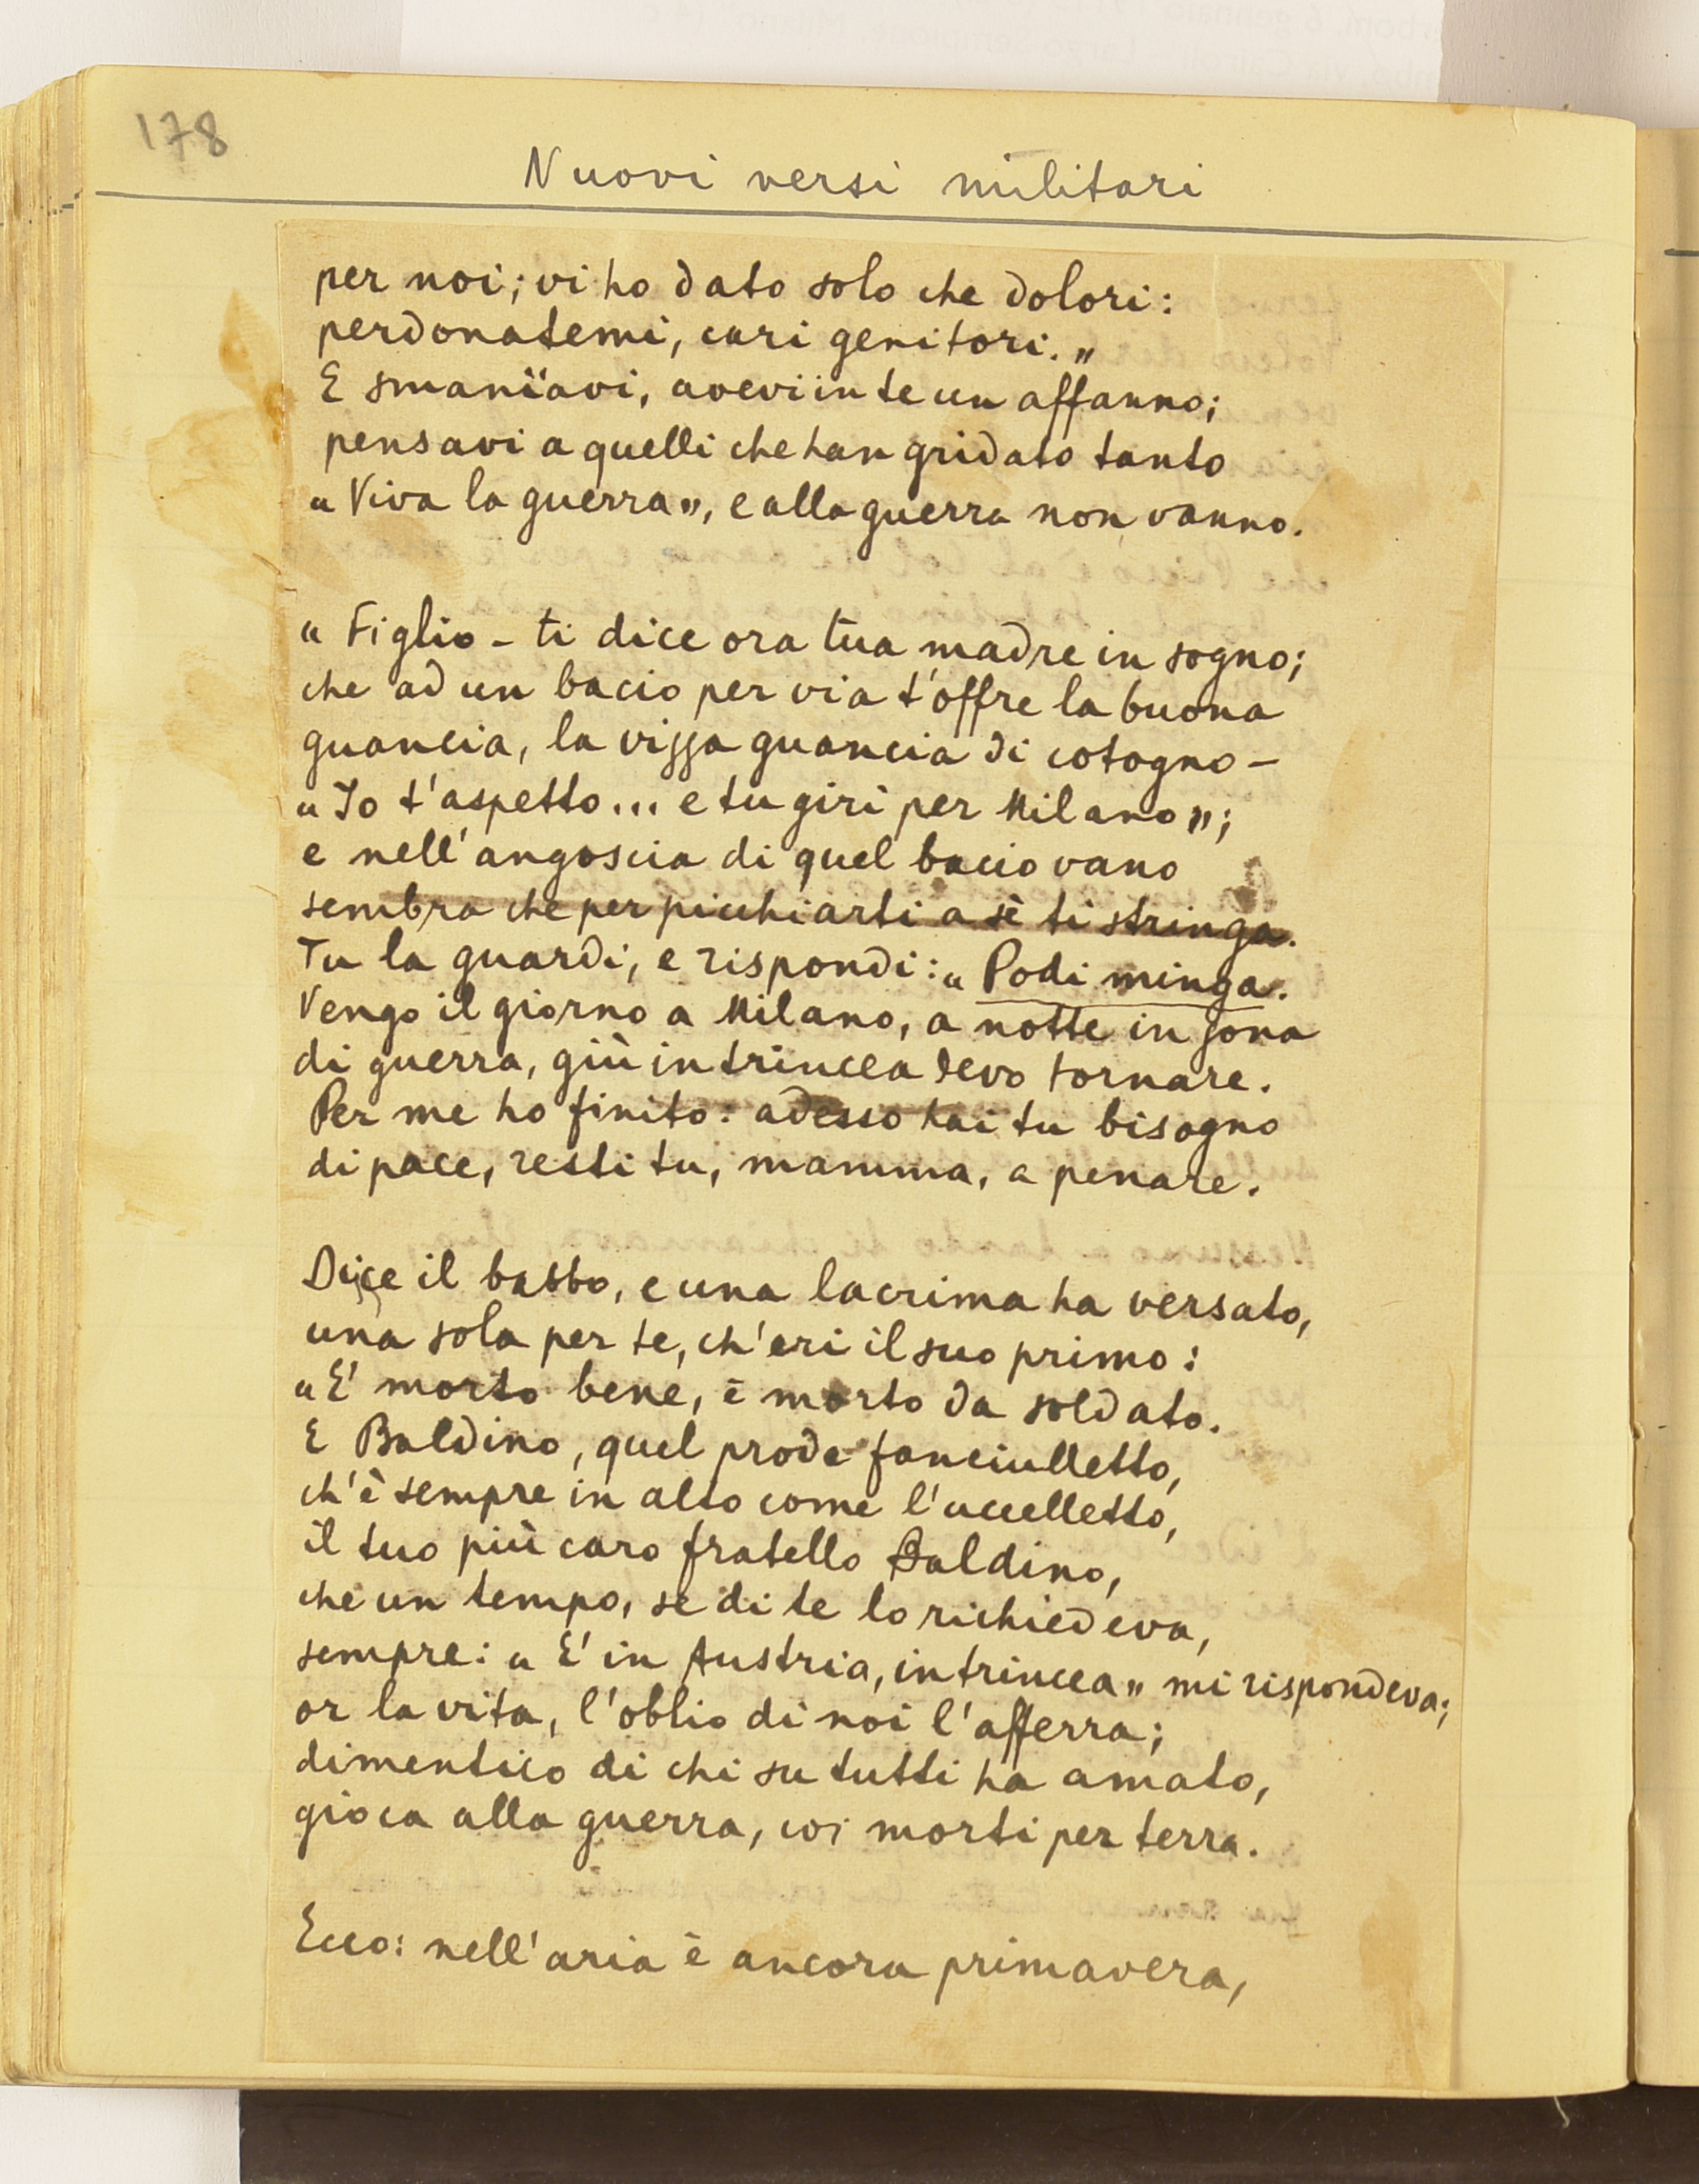 178
Nuovi versi militari
per noi; vi ho dato solo che dolori:
perdonatemi, cari genitori."
E smanïavi, avevi in te un affanno;
pensavi a quelli che han gridato tanto
"Viva la guerra", e alla guerra non vanno.
"Figlio - ti dice ora tua madre in sogno;
che ad un bacio per via t'offre la buona
guancia, la vizza guancia di cotogno -
"Io t'aspetto... e tu giri per Milano";
e nell'angoscia di quel bacio vano
sembra che per picchiarti a sè ti stringa.
Tu la guardi, e rispondi: "Podi minga.
Vengo il giorno a Milano, a notte in zona
di guerra, giù in trincea devo tornare.
Per me ho finito: adesso hai tu bisogno
di pace, resti tu, mamma, a penare.
Dice il babbo, e una lacrima ha versato,
una sola per te, ch'eri il suo primo:
"E' morto bene, è morto da soldato.
E Baldino, quel prode fanciulletto,
ch'è sempre in alto come l'uccelletto,
il tuo più caro fratello Baldino,
che un tempo, se di te lo richiedeva,
sempre: "E' in Austria, in trincea" mi rispondeva;
or la vita, l'oblio di noi l'afferra;
dimentico di chi su tutti ha amato,
gioca alla guerra, coi morti per terra.
Ecco: nell'aria è ancora primavera,